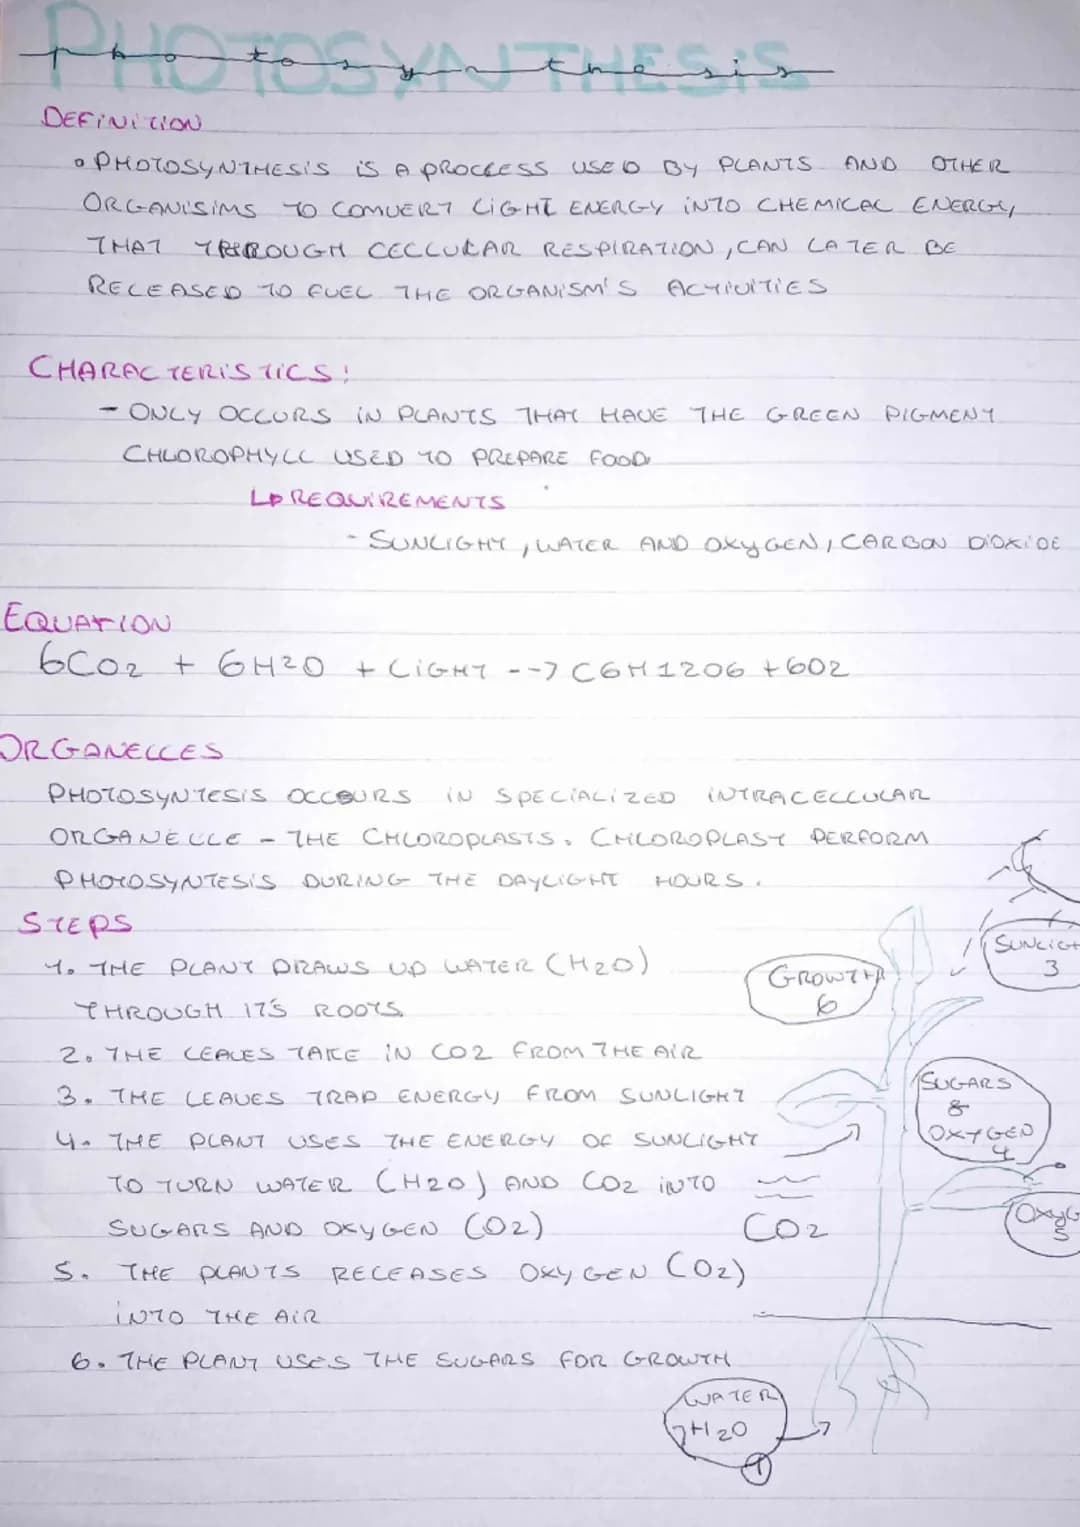 PHOTOSYNTHESIS
photosynthesis
DEFINITION
• PHOTOSYNTHESIS IS A PROCCESS USED BY PLANTS AND OTHER
ORGANISIMS TO CONVERT LIGHT ENERGY INTO CHEMICAL ENERGY,
THAT THROUGH CELLULAR RESPIRATION, CAN LATER BE
RELEASED TO FUEL THE ORGANISM'S ACTIVITIES
CHARACTERISTICS:
- ONLY OCCURS IN PLANTS THAT HAVE THE GREEN PIGMENT
CHLOROPHYLL USED TO PREPARE FOOD.
↳ REQUIREMENTS
- SUNLIGHT, WATER AND OXYGEN, CARBON DIOXIDE
EQUATION
6CO2 + 6H2O + LIGHT --> C6H12O6 + 6O2
ORGANELLES
PHOTOSYNTESIS OCCOURS IN SPECIALIZED INTRACELLULAR
ORGANELLE - THE CHLOROPLASTS. CHLOROPLAST PERFORM
PHOTOSYNTESIS DURING THE DAYLIGHT HOURS.
STEPS
1. THE PLANT DRAWS UP WATER (H2O)
THROUGH IT'S ROOTS
2. THE LEAVES TAKE IN CO2 FROM THE AIR
3. THE LEAVES TRAP ENERGY FROM SUNLIGHT
4. THE PLANT USES THE ENERGY OF SUNLIGHT
TO TURN WATER (H2O) AND CO2 INTO
SUGARS AND OXYGEN (O2)
5. THE PLANTS RELEASES OXYGEN (O2)
INTO THE AIR
6. THE PLANT USES THE SUGARS FOR GROWTH
SUNLIGH
3
GROWTH
6
SUGARS
&
OXYGEN
4
OXYG
5
CO2
WATER
H2O
1